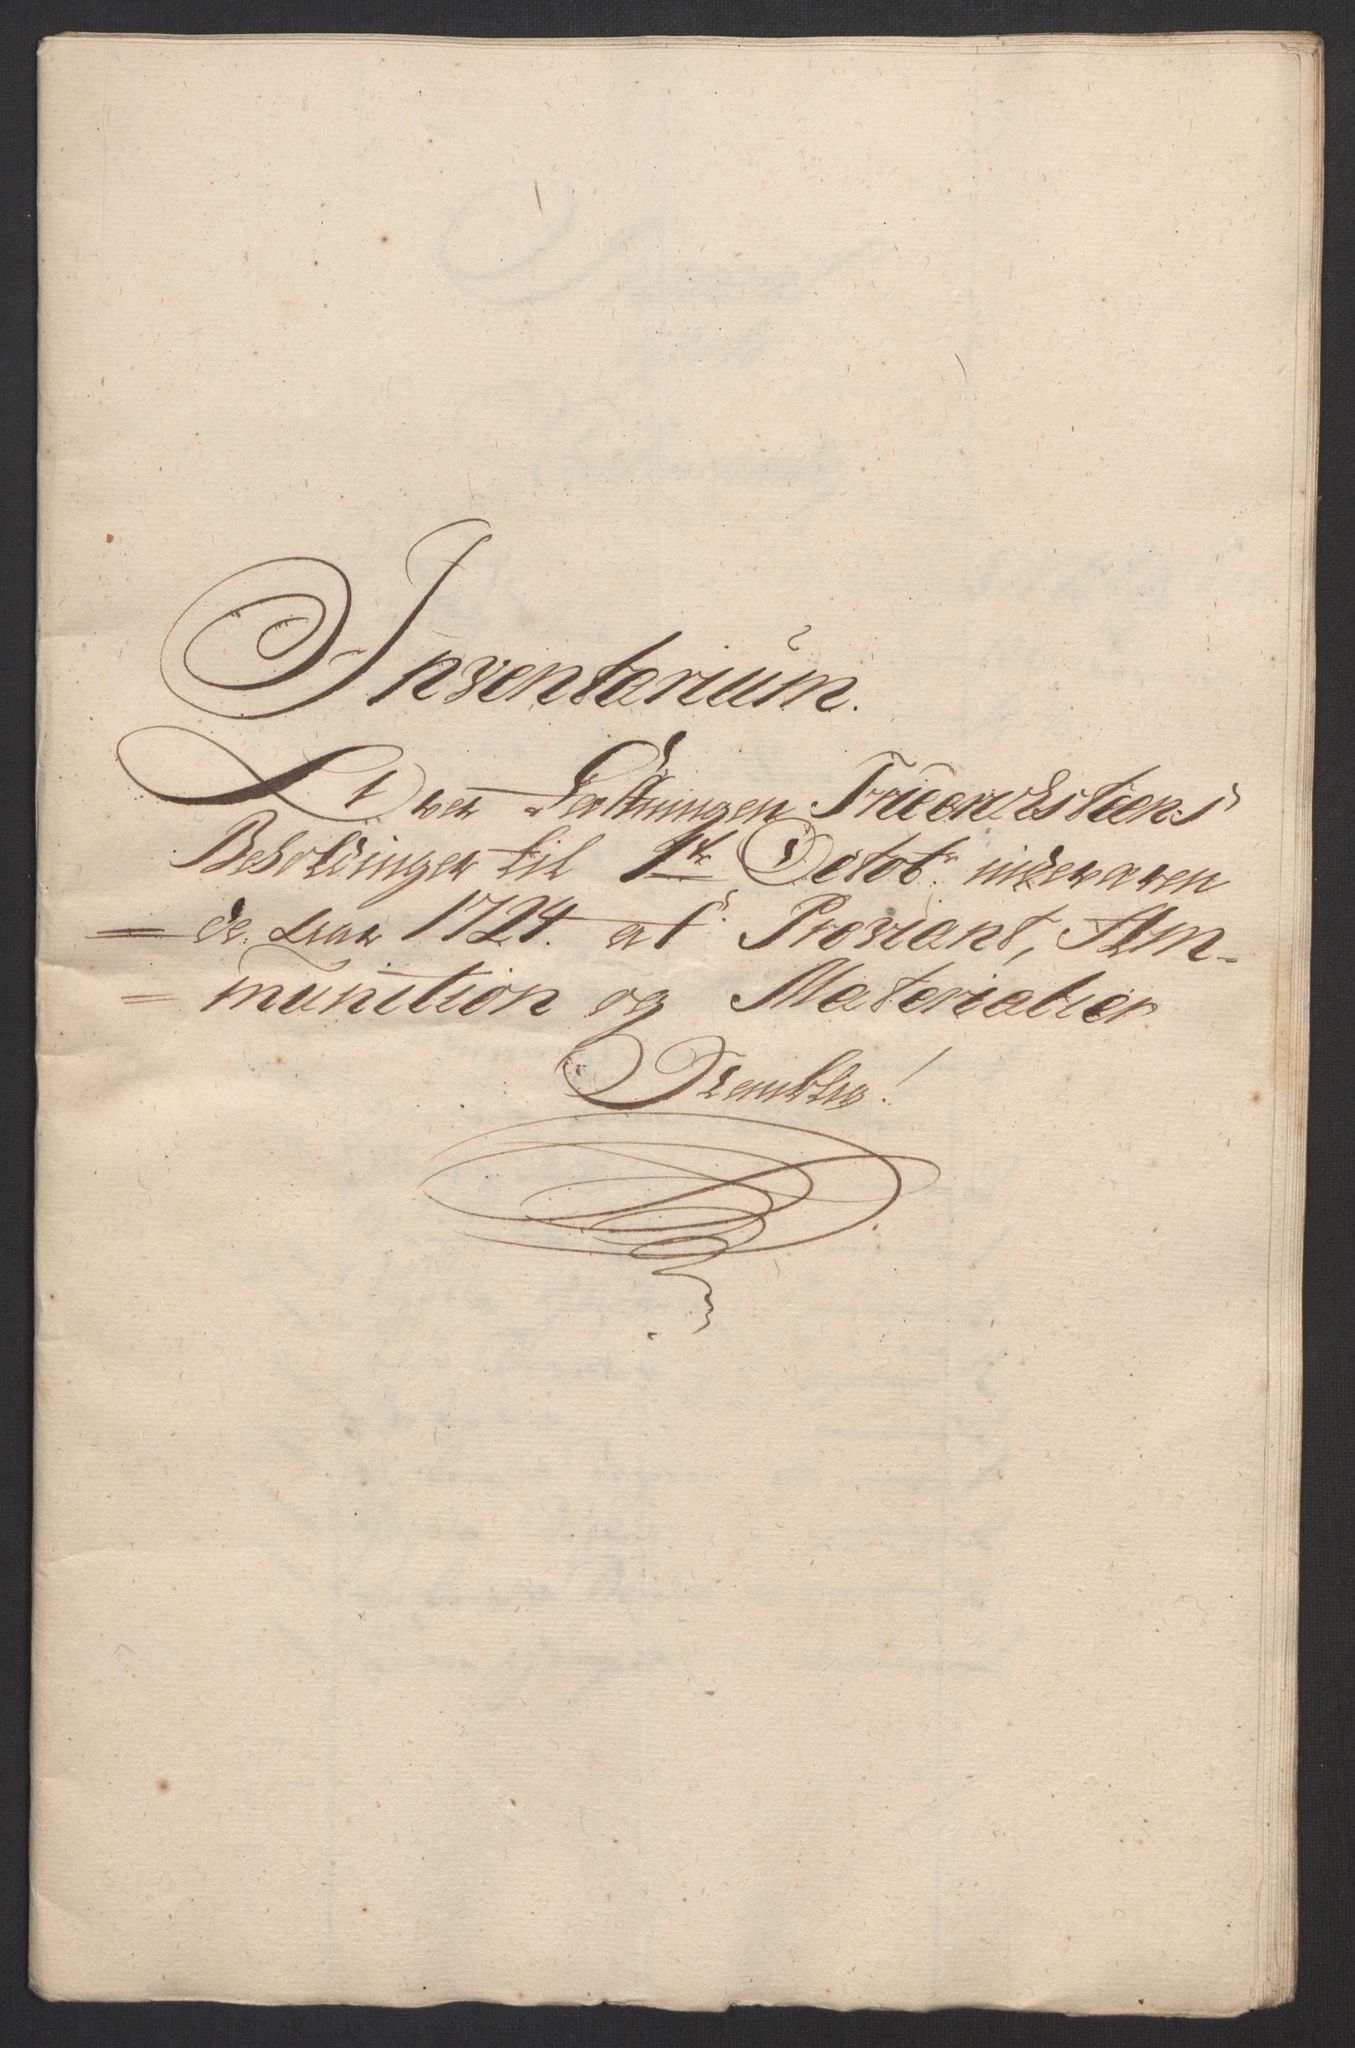 Inventarium.
Over Fæstningen Friderichsteens
Beholdninger til 1te Octobr: inderværen
= de Aar 1724. af Proviant, Am-
= munition og Materialier